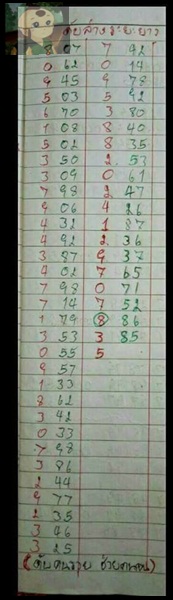 ดับล่างระยะยาว
8 07 7 92
0 62 0 14
9 45 9 78
5 03 5 92
6 70 3 80
1 08 8 40
5 02 8 35
3 50 2 53
3 09 0 61
7 98 2 47
9 06 4 26
4 32 1 87
4 92 2 36
3 87 9 37
4 02 7 65
7 98 0 71
7 14 7 52
1 79 8 86
3 53 3 85
0 55 5
9 57
1 33
8 62
3 42
0 33
7 98
3 86
2 44
9 77
2 35
3 46
3 25